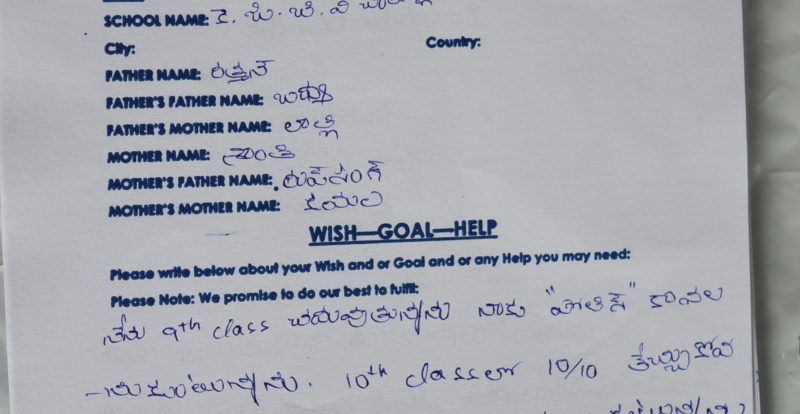 SCHOOL NAME: కె. జి. బి. వి
City: Country:
FATHER NAME: రత్నన్
FATHER'S FATHER NAME:
FATHER'S MOTHER NAME: లాల్లి
MOTHER NAME: శాంతి
MOTHER'S FATHER NAME: రుప్‌సింగ్
MOTHER'S MOTHER NAME: కమల
WISH—GOAL—HELP
Please write below about your Wish and or Goal and or any Help you may need:
Please Note: We promise to do our best to fulfil:
నేను 9th class చదువుతున్నాను నాకు "పోలిస్" కావల
-నుకుంటున్నాను. 10th classలో 10/10